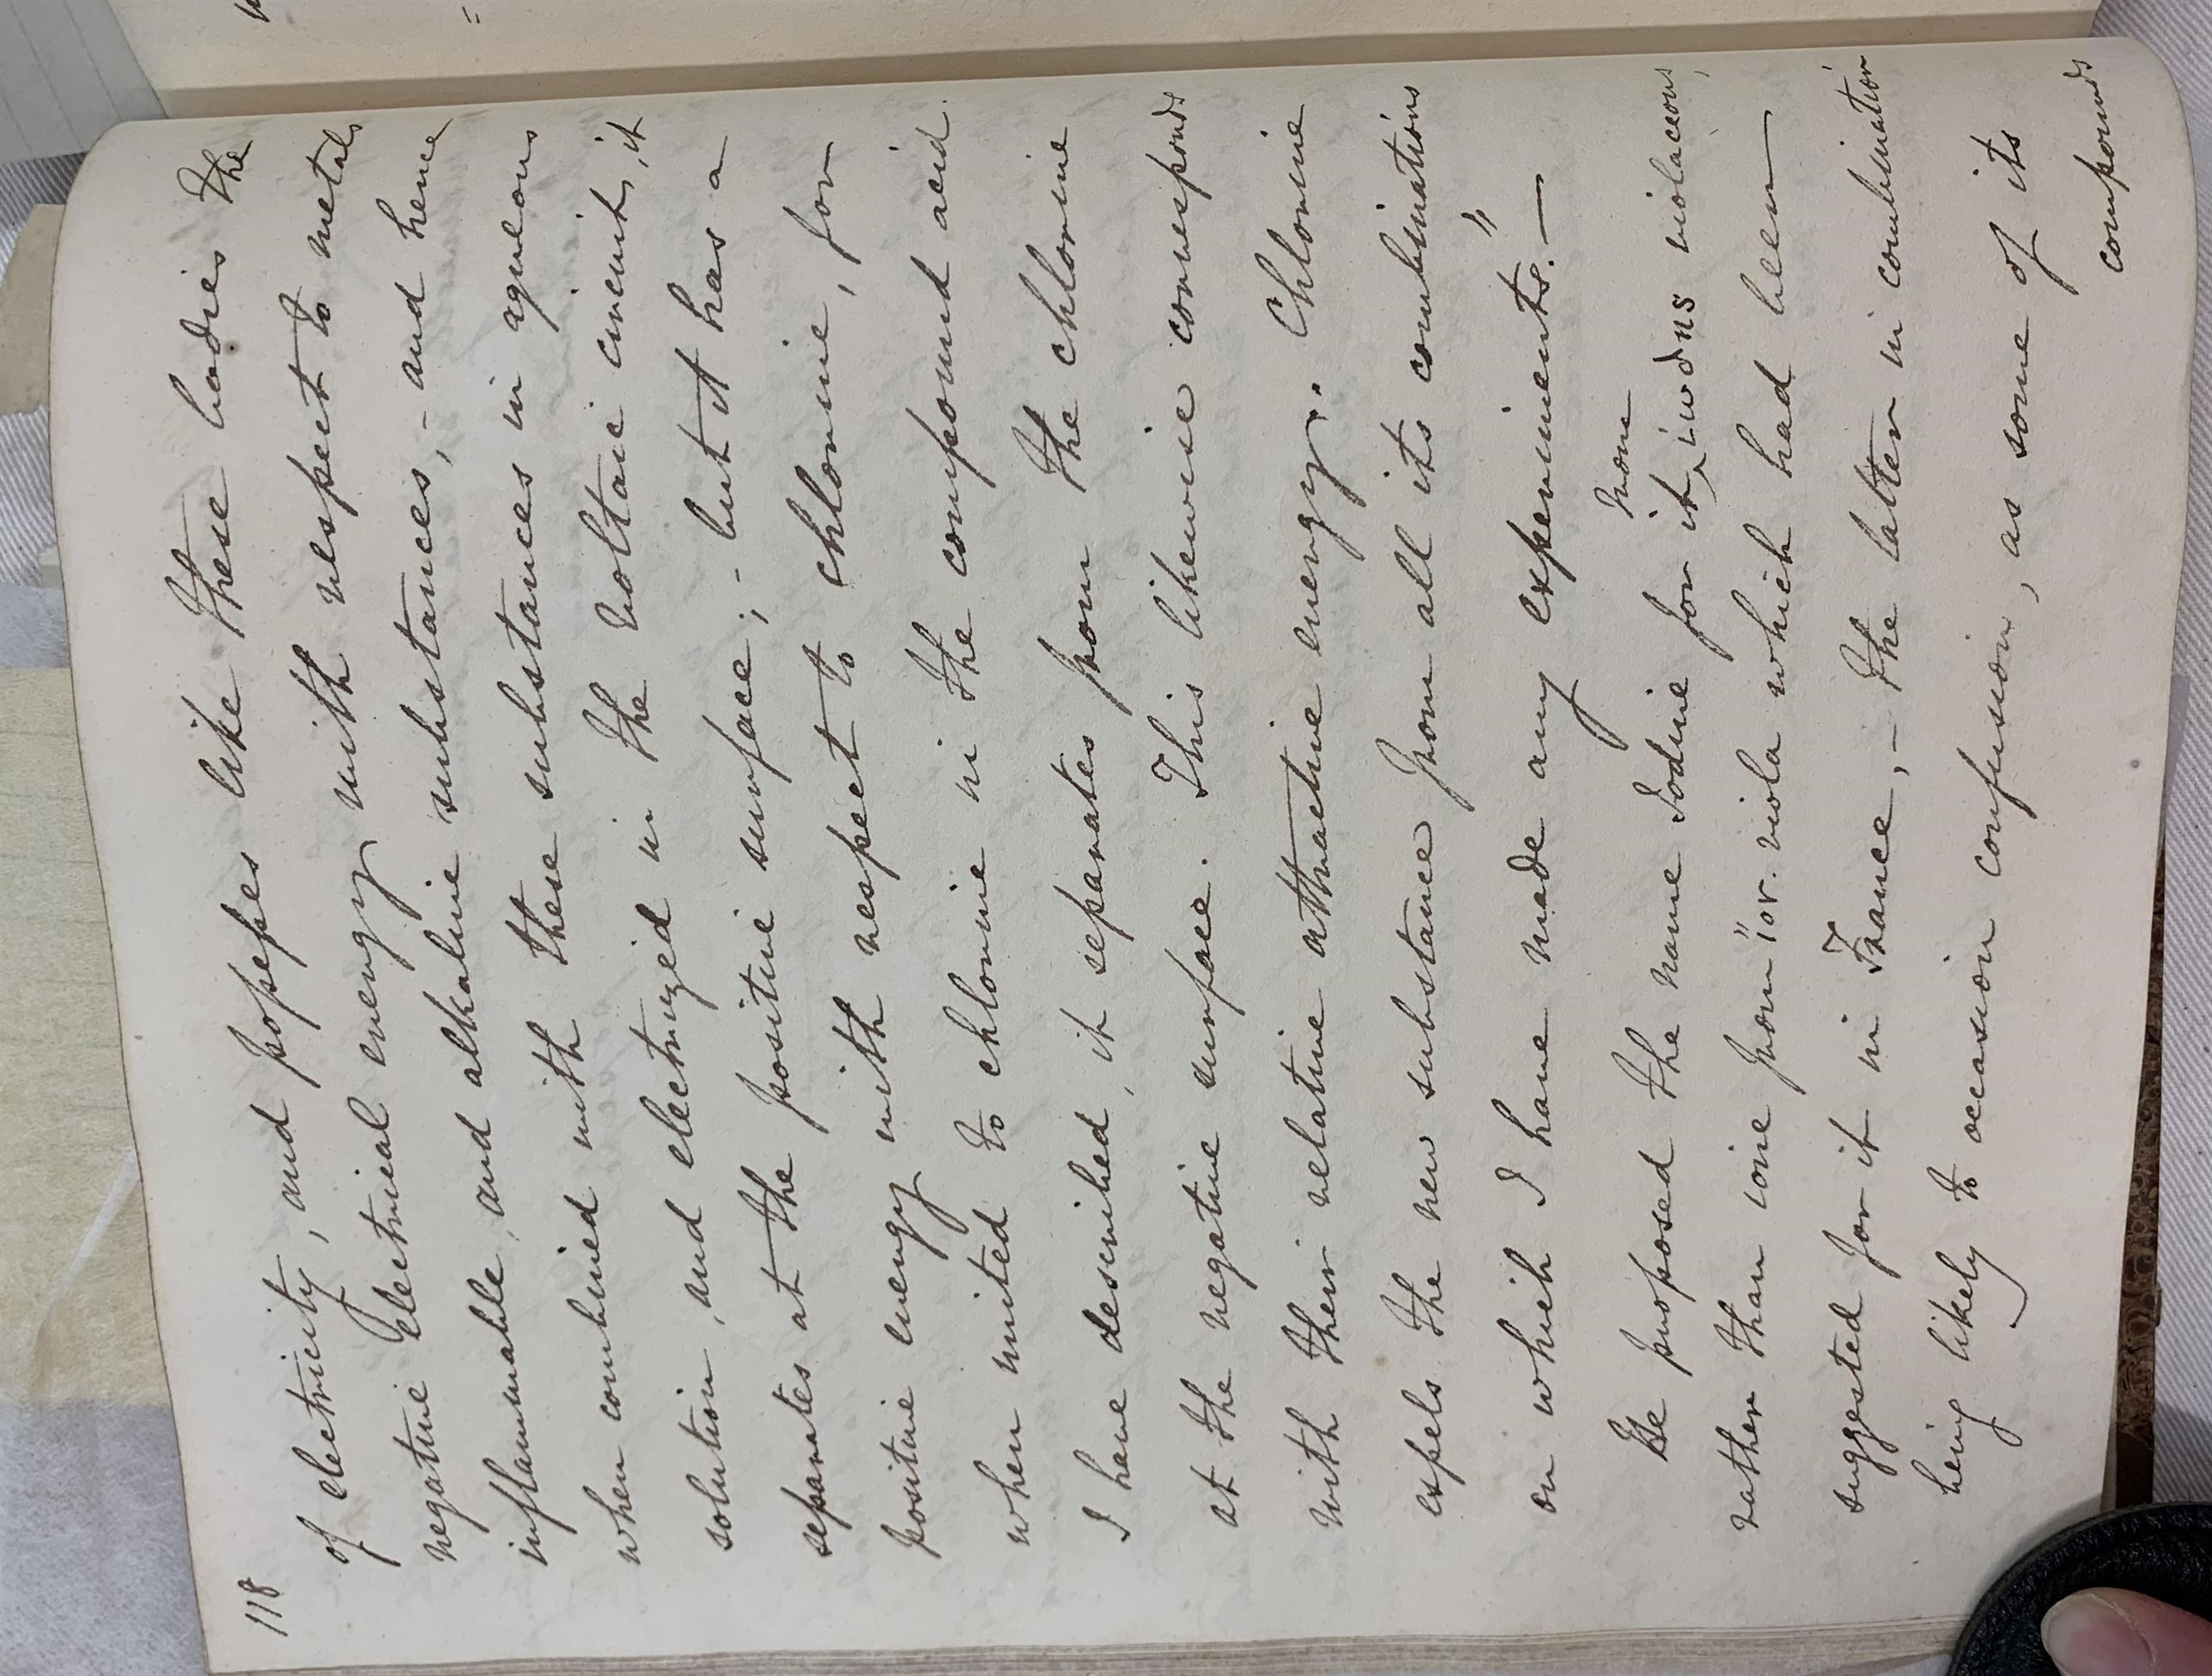 118
of electricity, and possesses like these bodies the
negative electrical energy with respect to metals
inflammable, and alkaline substances, - and hence
when combined with these substances in aqueous
solution, and electrized in the voltaic circuit, it
separates at the positive surface; - but it has a
positive energy with respect to chlorine, for
when united to chlorine in the compound acid
I have described, it separates from the chlorine
at the negative surface. This likewise corresponds
with their relative attractive energy. Chlorine
expels the new substance from all its combinations
on which I have made any experiments." —
He proposed the name Iodine for it, from ιωδης violaceous,
rather than ione from "ιον. viola which had been
suggested for it in France, - the latter in combination
being likely to occasion confusion, as some of its
compounds